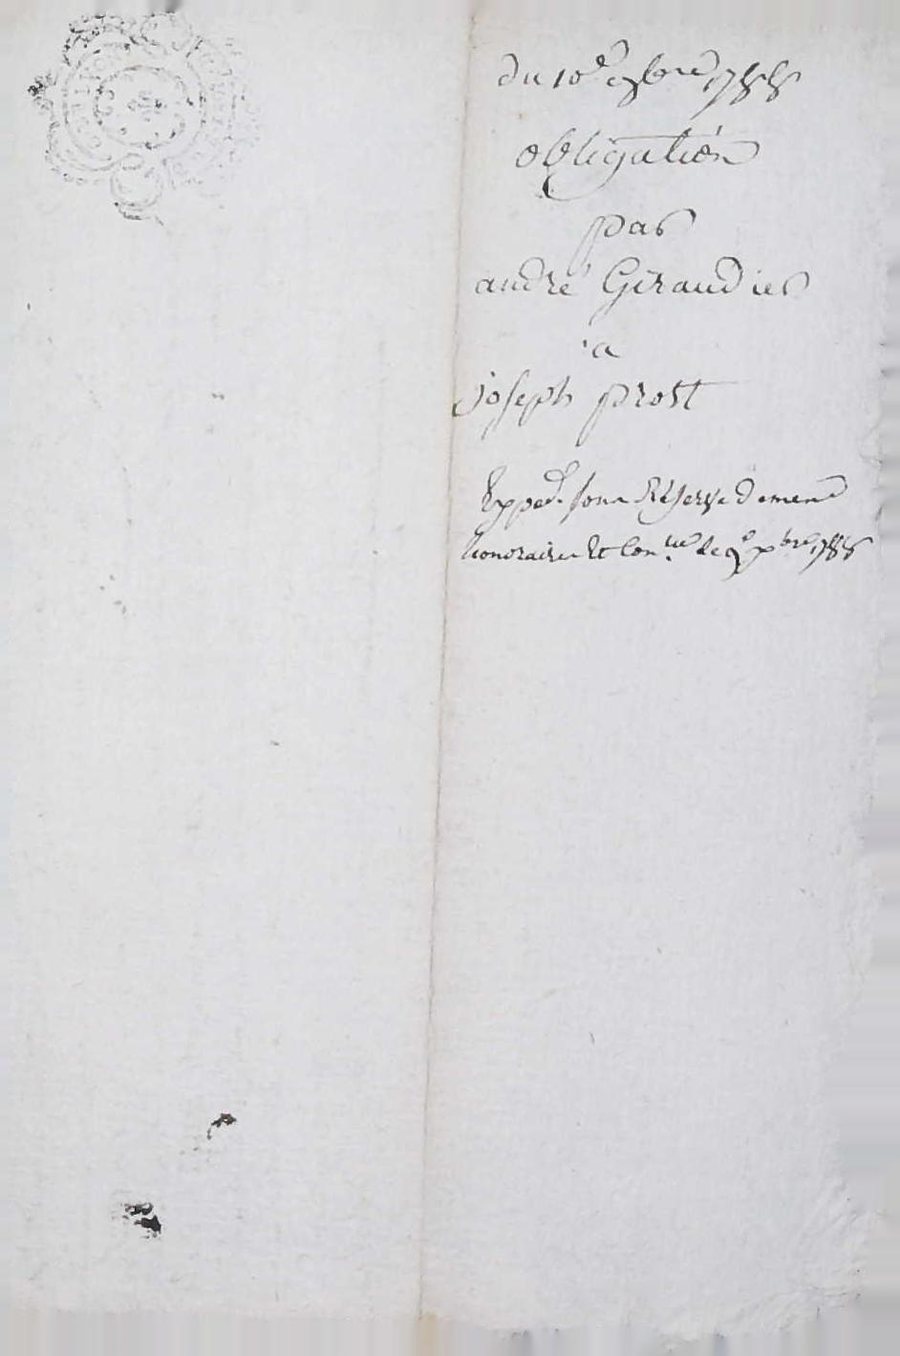 du 10e 9bre 1788
obligation
par
andré Giraudier
a
joseph prost
Exped. sous Réserve de mes
honoraires Et Con.lle le 9e xbre 1788